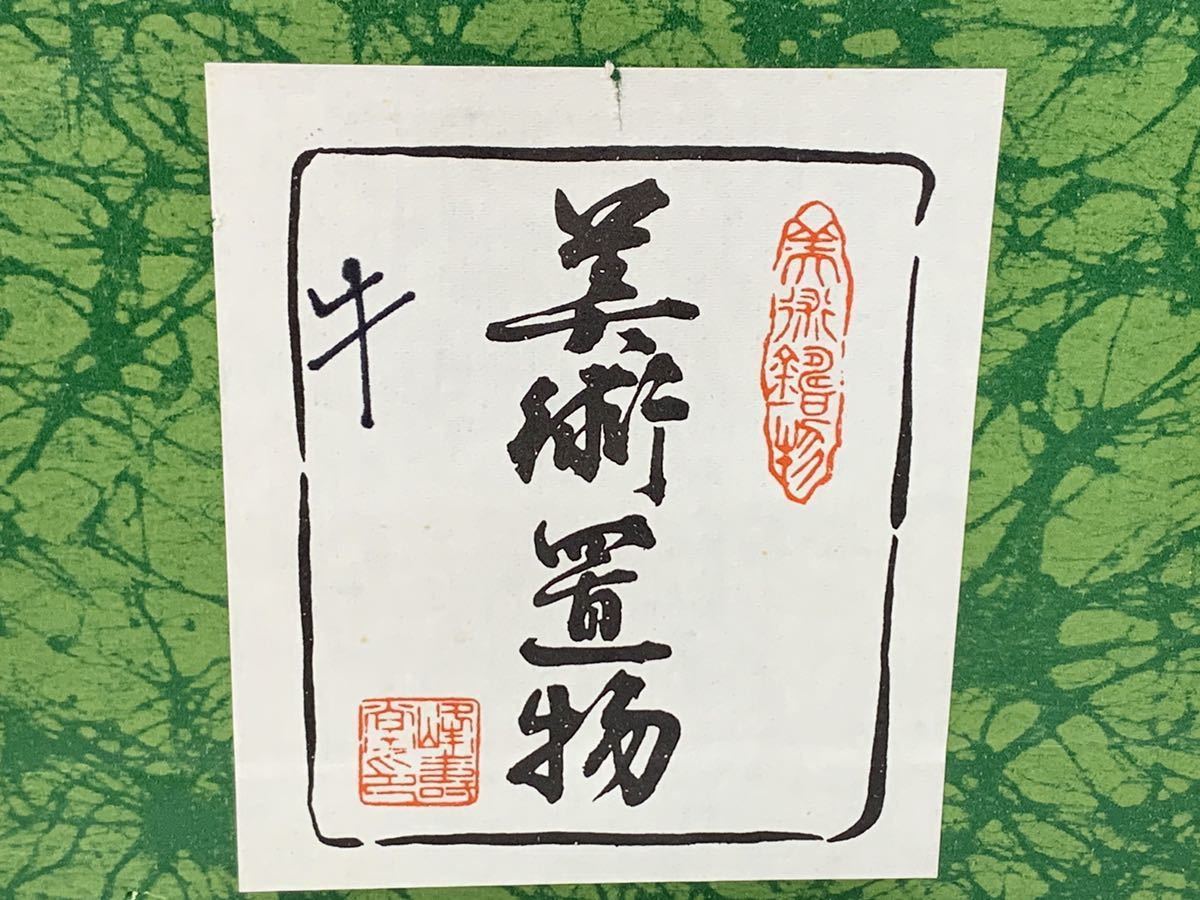 美術鋳物
美術置物
牛
峰寿